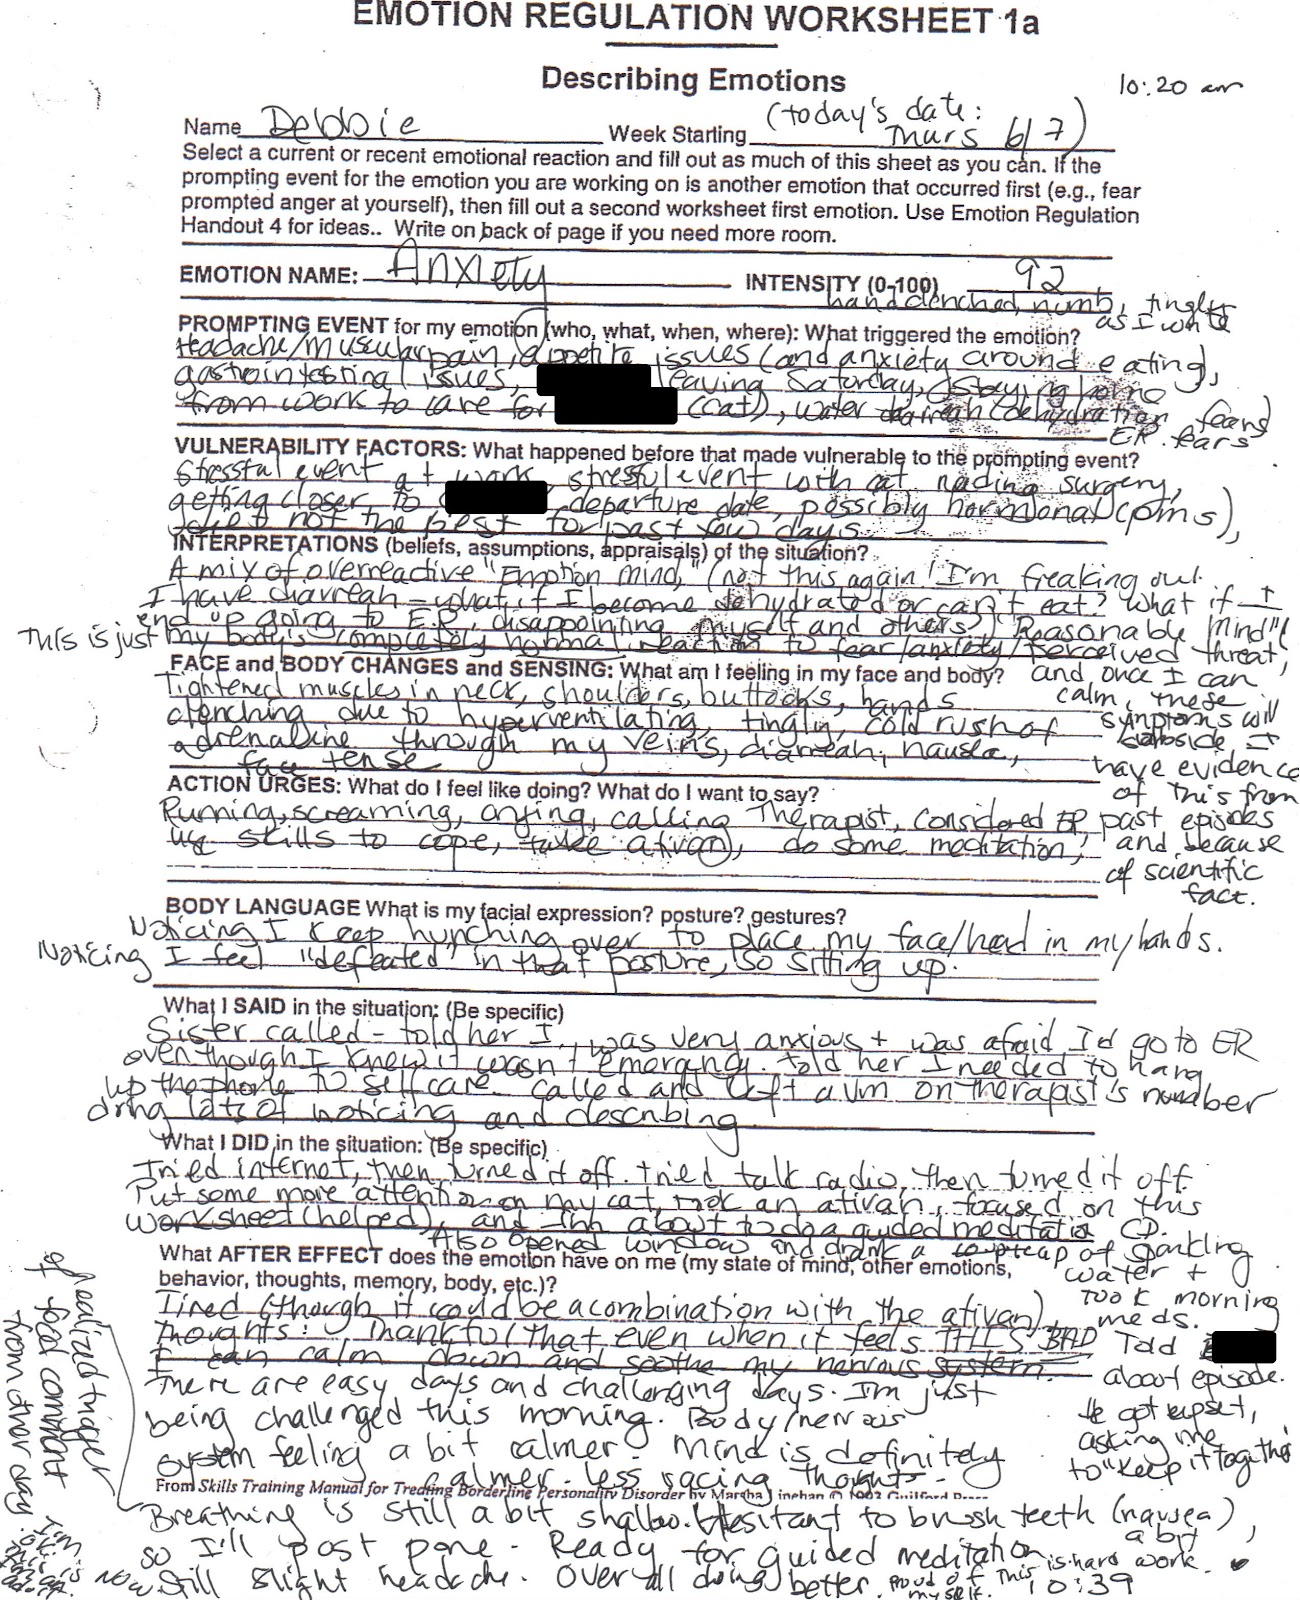 EMOTION REGULATION WORKSHEET 1a
Describing Emotions
10:20 am
Name Debbie
Week Starting (today's date: Thurs 6/7)
Select a current or recent emotional reaction and fill out as much of this sheet as you can. If the
prompting event for the emotion you are working on is another emotion that occurred first (e.g., fear
prompted anger at yourself), then fill out a second worksheet first emotion. Use Emotion Regulation
Handout 4 for ideas.. Write on back of page if you need more room.
EMOTION NAME: Anxiety INTENSITY (0-100) 92
hand clenched, numb, tingly
as I write
PROMPTING EVENT for my emotion (who, what, when, where): What triggered the emotion?
Headache/muscular pain, appetite issues (and anxiety around eating),
gastrointestinal issues, leaving Saturday, staying home
from work to care for (cat), water diarreah (dehydration fears)
ER fears
VULNERABILITY FACTORS: What happened before that made vulnerable to the prompting event?
Stressful event at work, stressful event with cat needing surgery,
getting closer to departure date, possibly hormonal (pms),
diet not the best for past few days
INTERPRETATIONS (beliefs, assumptions, appraisals) of the situation?
A mix of overreactive "Emotion mind," (not this again! I'm freaking out.
I have diarreah - what if I become dehydrated or can't eat? What if I
end up going to E.R, disappointing myself and others?) "Reasonable Mind" (
This is just my body's completely normal reaction to fear/anxiety/perceived threat,
and once I can
calm, these
symptoms will
subside I
have evidence
of this from
past episodes
and because
of scientific
fact.
FACE and BODY CHANGES and SENSING: What am I feeling in my face and body?
Tightened muscles in neck, shoulders, buttocks, hands
clenching due to hyperventilating, tingly, cold rush of
adrenaline through my veins, diarreah, nausea,
face tense
ACTION URGES: What do I feel like doing? What do I want to say?
Running, screaming, crying, calling Therapist, considered ER,
use skills to cope, take ativan, do some meditation,
BODY LANGUAGE What is my facial expression? posture? gestures?
Noticing I keep hunching over to place my face/head in my hands.
Noticing I feel "defeated" in that posture, so sitting up.
What I SAID in the situation: (Be specific)
Sister called - told her I was very anxious + was afraid I'd go to ER
even though I knew it wasn't emergency. told her I needed to hang
up the phone to self care. called and left a vm on therapist's number
doing lots of noticing and describing
What I DID in the situation: (Be specific)
Tried internet, then turned it off. tried talk radio, then turned it off
Put some more attention on my cat, took an ativan, focused on this
worksheet (helped), and am about to do a guided meditation CD.
Also opened window and drank a cup of sparkling
water +
took morning
meds.
What AFTER EFFECT does the emotion have on me (my state of mind, other emotions,
behavior, thoughts, memory, body, etc.)?
Tired (though it could be a combination with the ativan)
Thoughts: Thankful that even when it feels THIS BAD
I can calm down and soothe my nervous system.
There are easy days and challenging days. I'm just
being challenged this morning. Body/nervous
system feeling a bit calmer. Mind is definitely
calmer - less racing thoughts -
Told
about episode.
He got upset,
asking me
to "keep it together"
From Skills Training Manual for Treating Borderline Personality Disorder by Marsha Linehan © 1993 Guilford Press
Breathing is still a bit shallow. Hesitant to brush teeth (nausea),
so I'll post pone. Ready for guided meditation
Still slight headache. Over all doing a bit better. Proud of myself. This is hard work.
10:39
Realized trigger
of food comment
from other day
I'm
ok.
This is
now